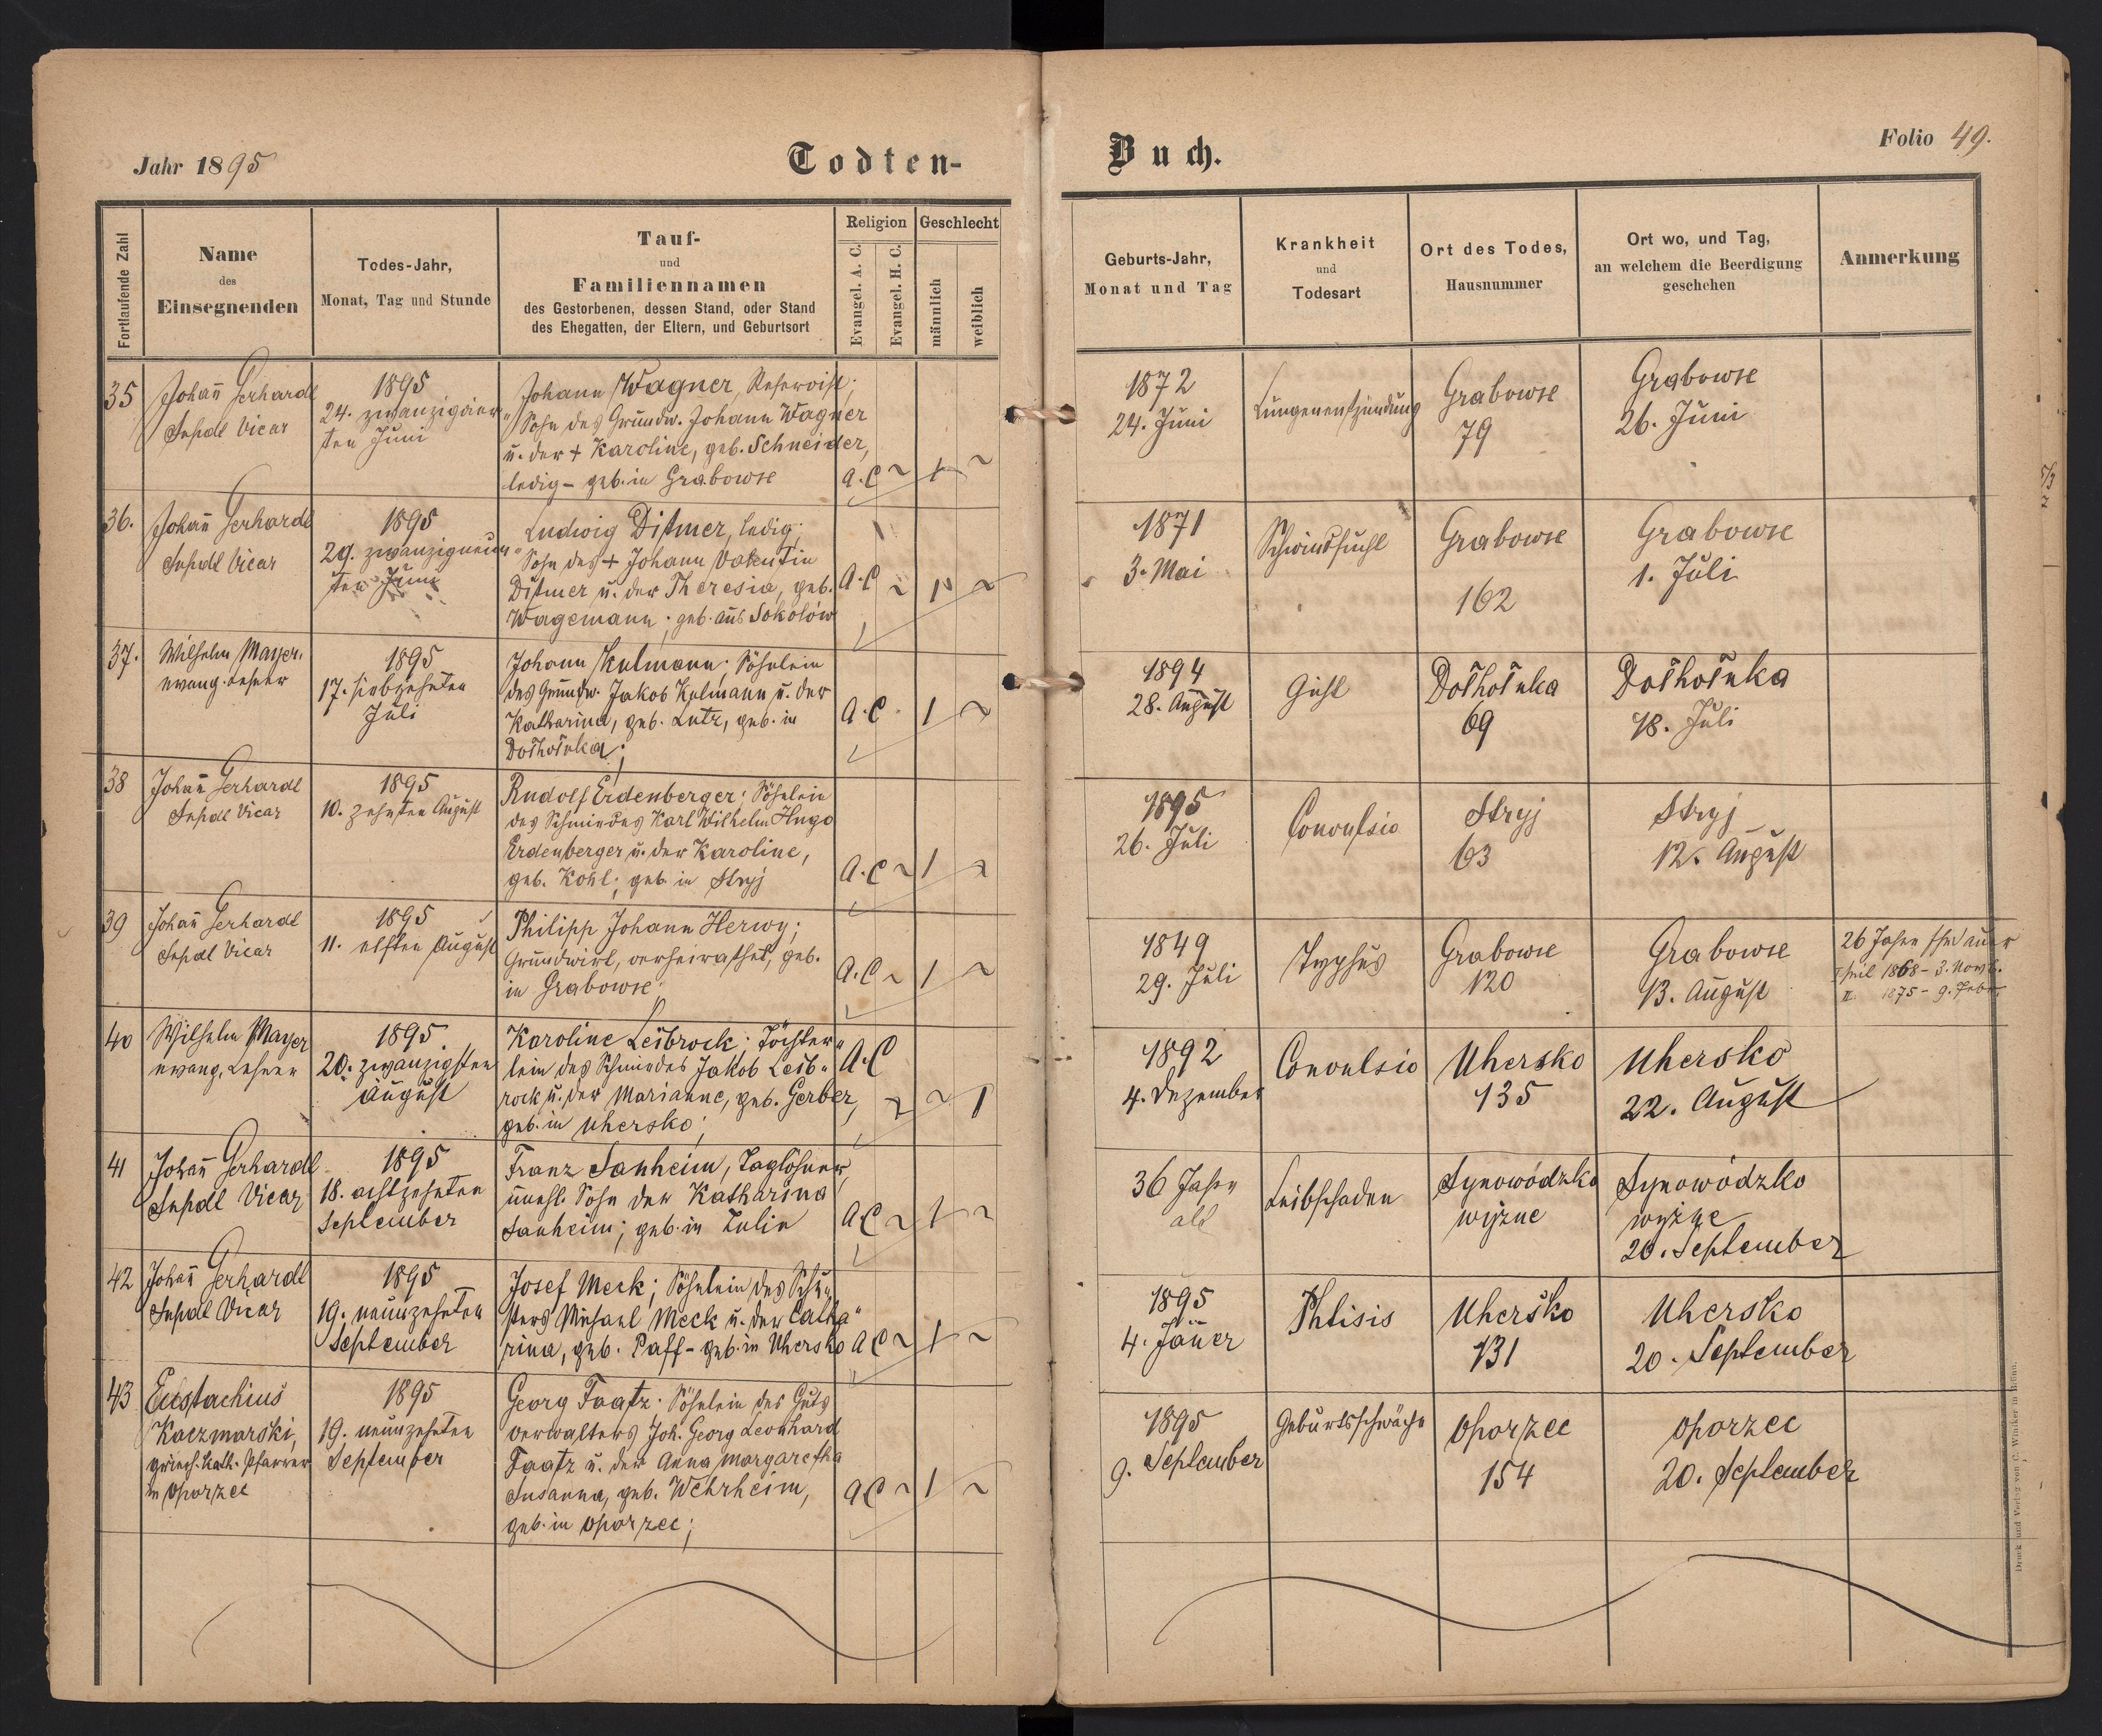 Jahr 1895
Todten-
Buch.
Folio 49.
Fortlaufende Zahl
Name
des
Einsegnenden
Todes-Jahr,
Monat, Tag und Stunde
Tauf-
und
Familiennamen
des Gestorbenen, dessen Stand, oder Stand
des Ehegatten, der Eltern, und Geburtsort
Religion
Evangel. A. C.
Evangel. H. C.
Geschlecht
männlich
weiblich
Geburts-Jahr,
Monat und Tag
Krankheit
und
Todesart
Ort des Todes,
Hausnummer
Ort wo, und Tag,
an welchem die Beerdigung
geschehen
Anmerkung
35
Johañ Gerhardt
Supdl Vicar
1895
24. zwanzigvier„
ten Juni
Johann Wagner, Reservist;
Sohn des Grundw. Johann Wagner
u. der + Karoline, geb. Schneider,
ledig – geb. in Grabowse
A.C ~ 1 ~
1872
24. Juni
Lungenentzündung
Grabowse
79
Grabowse
26. Juni
36.
Johañ Gerhardt
Supdl Vicar
1895
29. zwanzigneun„
ten Juni
Ludwig Ditmer, ledig;
Sohn des + Johann Valentin
Ditmer u. der Theresia, geb.
Wagemann; geb. aus Sokołów
A.C ~ 1 ~
1871
3. Mai
Schwindsucht
Grabowse
162
Grabowse
1. Juli
37.
Wilhelm Mayer,
evang. Lehrer
1895
17. siebzehnten
Juli
Johann Kulmann; Söhnlein
des Grundw. Jakob Kulmann u. der
Katharina, geb. Lutz, geb. in
Dołhołuka;
A.C. 1 ~
1894
28. August
Gicht
Dołhołuka
69
Dołhołuka
18. Juli
38
Johañ Gerhardt
Supdl Vicar
1895
10. zehnten August
Rudolf Erdenberger; Söhnlein
des Schmiedes Karl Wilhelm Hugo
Erdenberger u. der Karoline,
geb. Kohl; geb. in Stryj
A.C ~ 1 ~
1895
26. Juli
Convulsio
Stryj
63
Stryj
12. August
39
Johañ Gerhardt
Supdl Vicar
1895
11. elften August
Philipp Johann Herwy;
Grundwirt, verheirathet, geb.
in Grabowse;
A.C ~ 1 ~
1849
29. Juli
Typhus
Grabowse
120
Grabowse
13. August
26 Jahre Ehedauer
1868 – 3. Novb.
II. 1875 – 9. Febr.
40
Wilhelm Mayer
evang. Lehrer
1895
20. zwanzigsten
August
Karoline Leibrock; Töchter„
lein des Schmiedes Jakob Leib„
rock u. der Marianne, geb. Gerber,
geb. in Uhersko;
A.C ~ ~ 1
1892
4. Dezember
Convulsio
Uhersko
135
Uhersko
22. August
41
Johañ Gerhardt
Supdl Vicar
1895
18. achtzehnten
September
Franz Sanheim, Taglöhner,
unehl. Sohn der Katharina
Sanheim; geb. in Zulin
A.C ~ 1 ~
36 Jahre
alt
Leibschaden
Synowódzko
wyżne
Synowódzko
wyżne
20. September
42
Johañ Gerhardt
Supdl Vicar
1895
19. neunzehnten
September
Josef Meck; Söhnlein des Schu„
sters Michael Meck u. der Catha„
rina, geb. Paff – geb. in Uhersko
A.C ~ 1 ~
1895
4. Jäner
Phtisis
Uhersko
131
Uhersko
20. September
43
Eustachius
Kaczmarski,
griech. kath. Pfarrer
in Oporzec
1895
19. neunzehnten
September
Georg Faatz; Söhnlein des Guts
verwalters Joh. Georg Leonhard
Faatz u. der Anna Margaretha
Susanna, geb. Wehrheim,
geb. in Oporzec;
A.C ~ 1 ~
1895
9. September
Geburtsschwäche
Oporzec
154
Oporzec
20. September
Druck und Verlag von C. Winiker in Brünn.